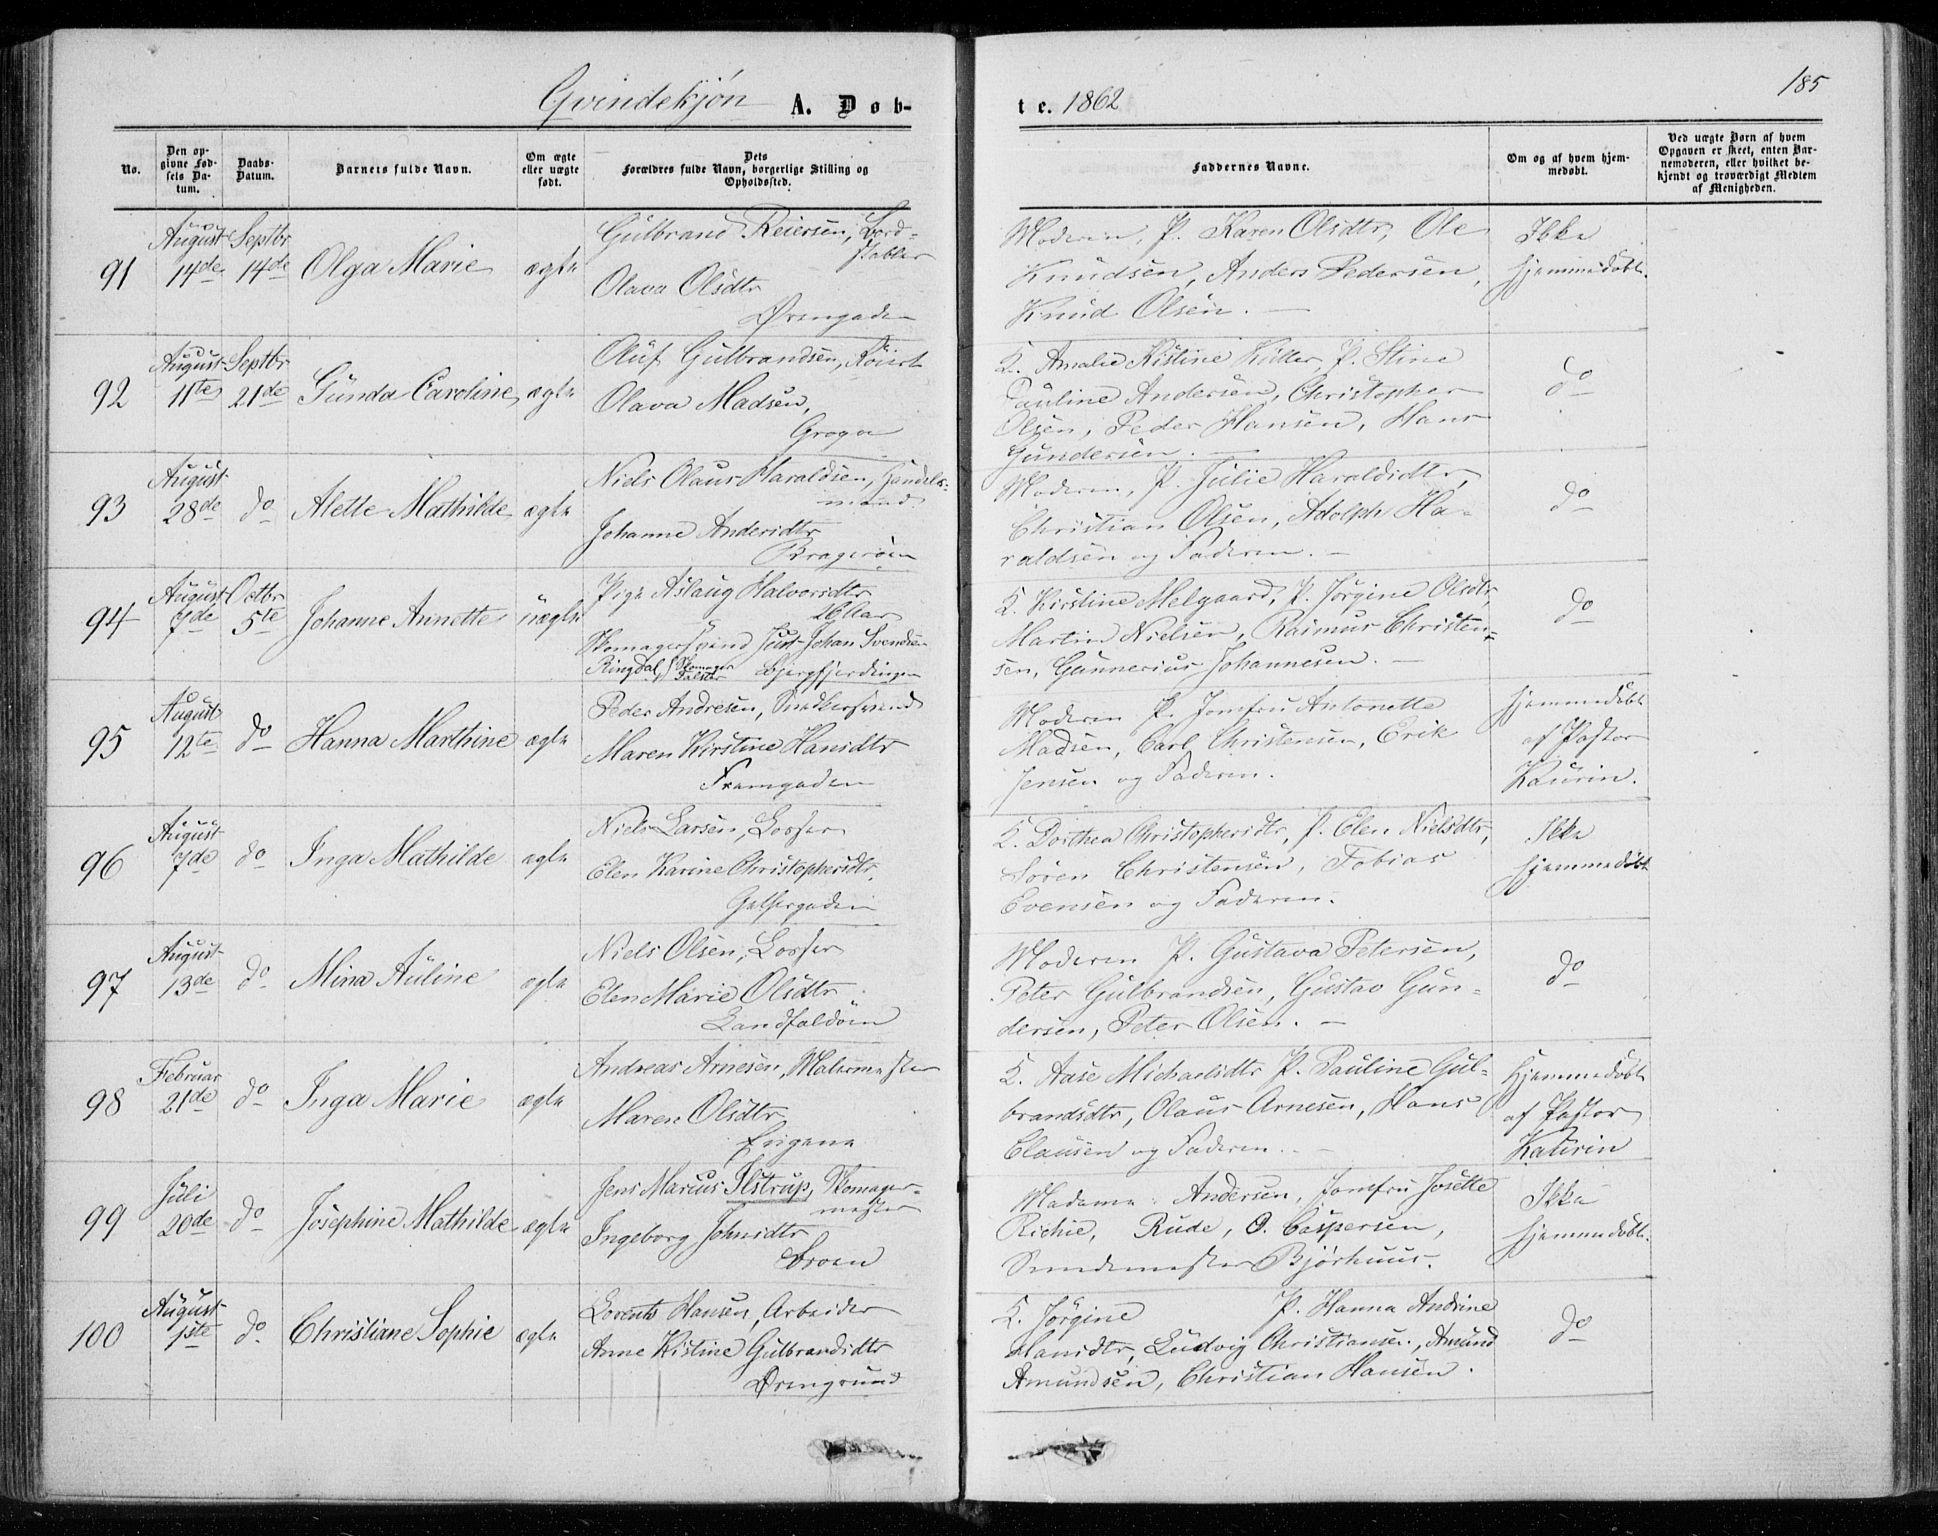 Qvindekjøn A. Døb-
te. 1862
185
No.
Den op-
givne Fød-
sels Da-
tum.
Daabs-
Datum.
Barnets fulde Navn.
Om ægte
eller uægte
født.
Dets
Forældres fulde Navn, borgerlige Stilling og
Opholdssted.
Faddernes Navne.
Om og af hvem hjem-
medøbt.
Ved uægte Børn af hvem
Opgaven er skeet, enten Bar-
nemoderen, eller hvilket be-
kjendt og troværdigt Medlem
af Menigheden.
91
August
14de
Septbr
14de
Olga Marie
ægte
Gulbrand Reiersen, Bord-
stabler
Olava Olsdtr
Ørengaden
Moderen, P. Karen Olsdtr, Ole
Knudsen, Anders Pedersen,
Knud Olsen. —
Ikke
hjemmedøbt.
92
August
11te
Septbr
21de
Gunda Caroline
ægte
Oluf Gulbrandsen,
Olava Madsen,
K. Amalie Kistine P. Stine
Pauline Andersen, Christopher
Olsen, Peder Hansen, Hans
Gundersen. —
do
93
August
28de
do
Alette Mathilde
ægte
Niels Olaus Haraldsen, Handels-
mand
Johanne Andersdtr
Bragerøen
Moderen, P. Julie Haraldsdtr,
Christian Olsen, Adolph Ha-
raldsen og Faderen. —
do
94
August
7de
Octbr
5te
Johanne Annette
uægte
Pige Aslaug Halvorsdtr
26 Aar
Skomagersvend Just Johan Svendsen
Ringdal, Skomager
Falster Bjergfjerdingen
K. Kirstine Melgaard, P. Jørgine Olsdtr,
Martin Nielsen, Rasmus Christen-
sen, Gunnerius Johannesen. —
do
95
August
12te
do
Hanna Marthine
ægte
Peder Andresen, Snedkersvend
Maren Kirstine Hansdtr
Tramgaden
Moderen P. Jomfru Antonette
Madsen, Carl Christensen, Erik
Jensen og Faderen.
Hjemmedøbt
af Pastor
Kaurin.
96
August
7de
do
Inga Mathilde
ægte
Niels Larsen, Losser
Elen Karine Christophersdtr,
K. Dorthea Christophersdtr, P. Elen Nielsdtr,
Søren Christensen, Tobias
Evensen og Faderen.
Ikke
hjemmedøbt
97
August
13de
do
Mina Auline
ægte
Niels Olsen, Losser
Elen Marie Olsdtr
Landfaldøen
Moderen P. Gustava Petersen,
Peter Gulbrandsen, Gustav Gun-
dersen, Peter Olsen. —
do
98
Februar
21de
do
Inga Marie
ægte
Andreas Arnesen, Malermester
Maren Olsdtr
Engene
K. Aase Michaelsdtr P. Pauline Gul-
brandsdtr, Olaus Arnesen, Hans
Clausen og Faderen. —
Hjemmedøbt
af Pastor
Kaurin
99
Juli
20de
do
Josephine Mathilde
ægte
Jens Marius Ilstrup, Skomager-
mester
Ingeborg Johnsdtr
Broen
Madame Andersen, Jomfru Josette
Richie, Rude, O. Caspersen,
Smedemester Bjørhuus.
Ikke
hjemmedøbt.
100
August
1ste
do
Christiane Sophie
ægte
Lorents Hansen, Arbeider
Anne Kistine Gulbrandsdtr
Ørengrund
K. Jørgine P. Hanna Andrine
Hansdtr, Ludvig Christiansen, Amund
Amundsen, Christian Hansen.
do